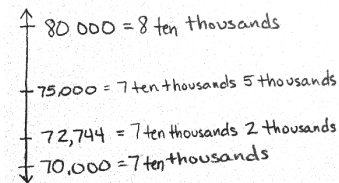 80 000 = 8 ten thousands
75,000 = 7 ten thousands 5 thousands
72,744 = 7 ten thousands 2 thousands
70,000 = 7 ten thousands